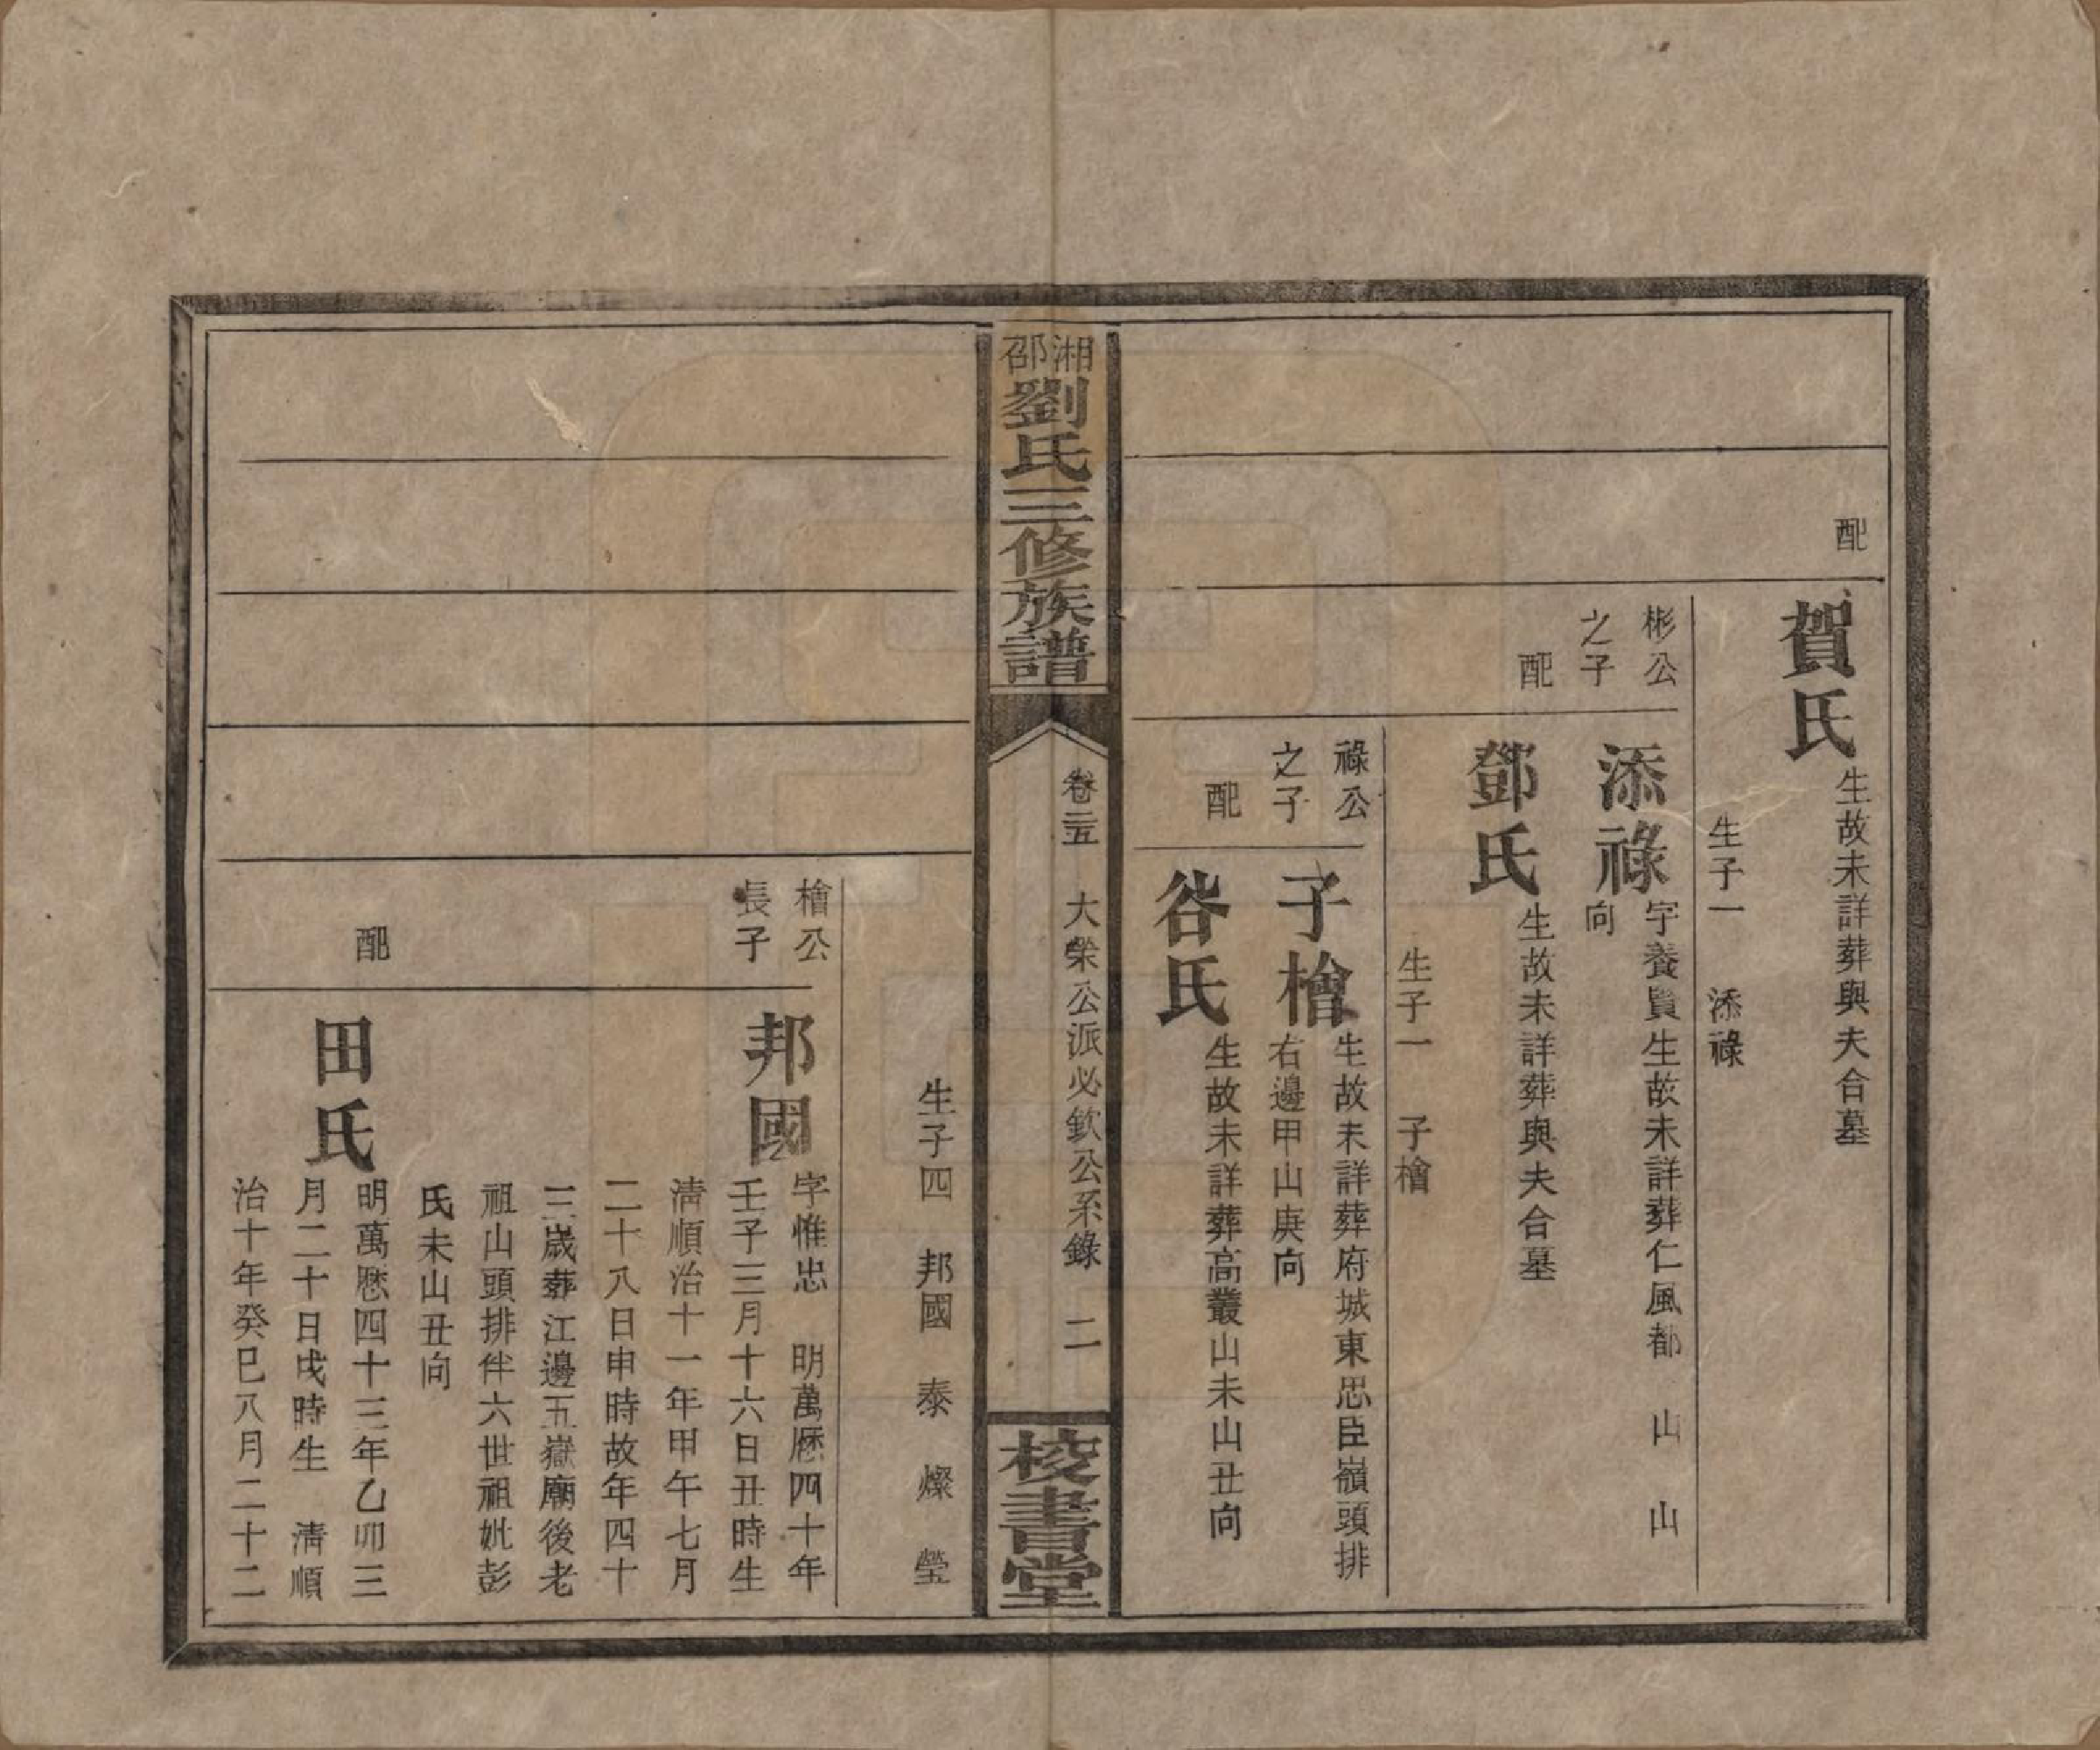 配
賀氏
生故未詳葬與夫合墓
生子一　添祿
彬公
之子
添祿
字養賢生故未詳葬仁風都　山　山
向
配
鄧氏
生故未詳葬與夫合墓
生子一　子檜
祿公
之子
子檜
生故未詳葬府城東思臣嶺頭排
右邊甲山庚向
配
谷氏
生故未詳葬高叢山未山丑向
湘邵
劉氏三修族譜
卷二五　大榮公派必欽公系錄　二
校書堂
生子四　邦國　泰　燦　瑩
檜公
長子
邦國
字惟忠　明萬歷四十年
壬子三月十六日丑時生
淸順治十一年甲午七月
二十八日申時故年四十
三歲葬江邊五嶽廟後老
祖山頭排伴六世祖妣彭
氏未山丑向
配
田氏
明萬歷四十三年乙卯三
月二十日戌時生　淸順
治十年癸巳八月二十二